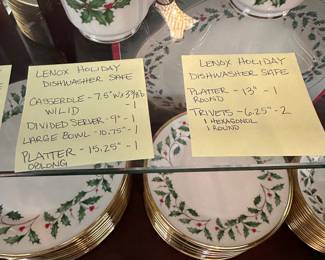 LENOX HOLIDAY
DISHWASHER SAFE
CASSEROLE - 7.5"W x 3 3/4"D
W/LID - 1
DIVIDED SERVER - 9" - 1
LARGE BOWL - 10.75" - 1
PLATTER - 15.25" - 1
OBLONG
LENOX HOLIDAY
DISHWASHER SAFE
PLATTER - 13" - 1
ROUND
TRIVETS - 6.25" - 2
1 HEXAGONIL
1 ROUND